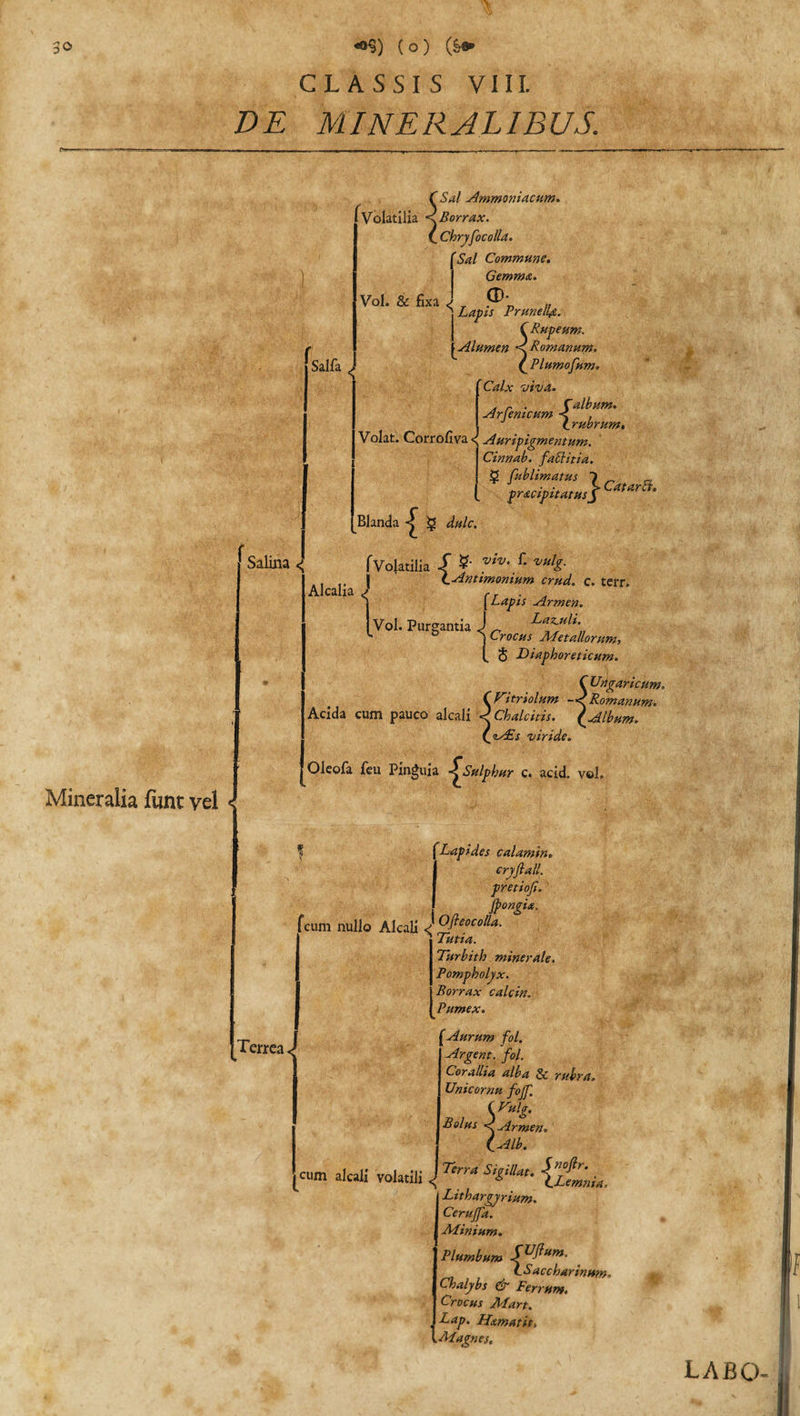 30 (o)
CLASSIS VIII.
DE MINERALIBUS.
Mineralia ſunt vel
Salina
Salſa
Volatilia
Sal Ammoniacum.
Borrax.
Chryſocolla.
Vol. & fixa
Sal Commune.
Gemmæ.
🜕.
Lapis Prunellæ.
Alumen
Rupeum.
Romanum.
Plumoſum.
Volat. Corroſiva
Calx viva.
Arſenicum
album.
rubrum.
Auripigmentum.
Cinnab. factitia.
☿ ſublimatus
præcipitatus
Catarct.
Blanda
☿ dulc.
Alcalia
Volatilia
☿. viv. ſ. vulg.
Antimonium crud. c. terr.
Vol. Purgantia
Lapis Armen.
Lazuli.
Crocus Metallorum,
♁ Diaphoreticum.
Acida cum pauco alcali
Vitriolum
Ungaricum.
Romanum.
Album.
Chalcitis.
Æs viride.
Oleoſa ſeu Pinguia
Sulphur c. acid. vol.
Terrea
cum nullo Alcali
Lapides calamin.
cryſtall.
pretioſi.
ſpongiæ.
Oſteocolla.
Tutia.
Turbith minerale.
Pompholyx.
Borrax calcin.
Pumex.
cum alcali volatili
Aurum fol.
Argent. fol.
Corallia alba & rubra.
Unicornu foſſ.
Bolus
Vulg.
Armen.
Alb.
Terra Sigillat.
noſtr.
Lemnia.
Lithargyrium.
Ceruſſa.
Minium.
Plumbum
Uſtum.
Saccharinum.
Chalybs & Ferrum.
Crocus Mart.
Lap. Hæmatit.
Magnes.
LABO-